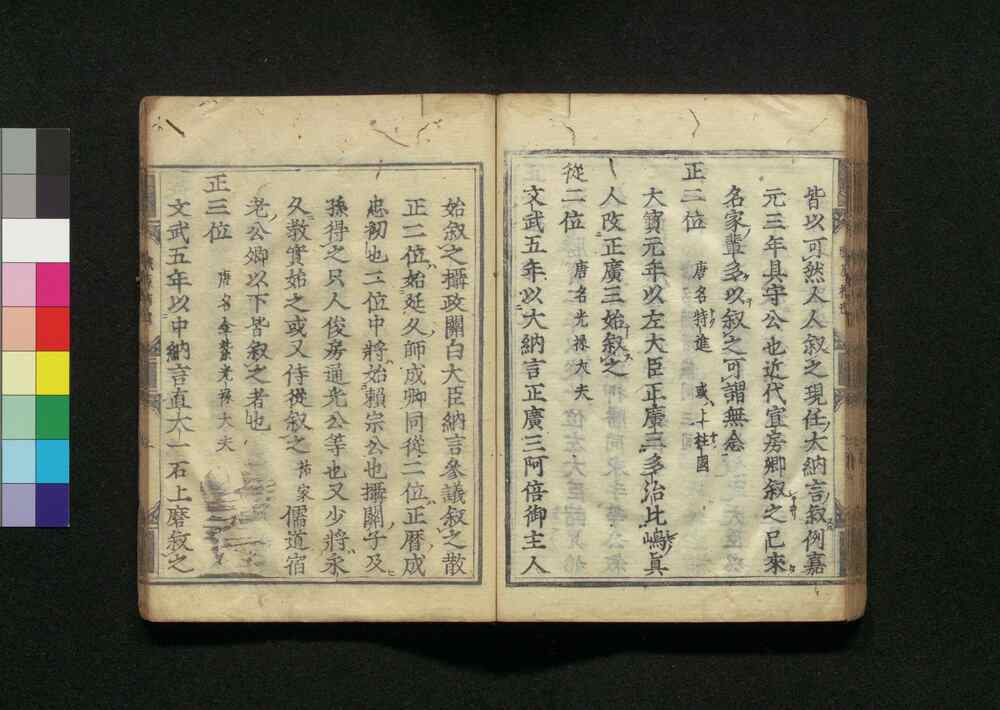 皆以可然人人叙之現任大納言叙例嘉
元三年具守公也近代宣房卿叙之已來
名家輩多以叙之可謂無念
正二位 唐名特進 或上柱國
大寶元年以左大臣正廣三多治比嶋眞
人改正廣三始叙之
從二位 唐名光祿大夫
文武五年以大納言正廣三阿倍御主人
始叙之攝政關白大臣納言參議叙之散
正二位始延久師成卿同從二位正暦成
忠初也二位中將始賴宗公也攝關子及
孫得之只人俊房通光公等也又少將永
久教實始之或又侍從叙之 非家 儒道宿
老公卿以下皆叙之者也
正三位 唐名金紫光祿大夫
文武五年以中納言直大一石上磨叙之